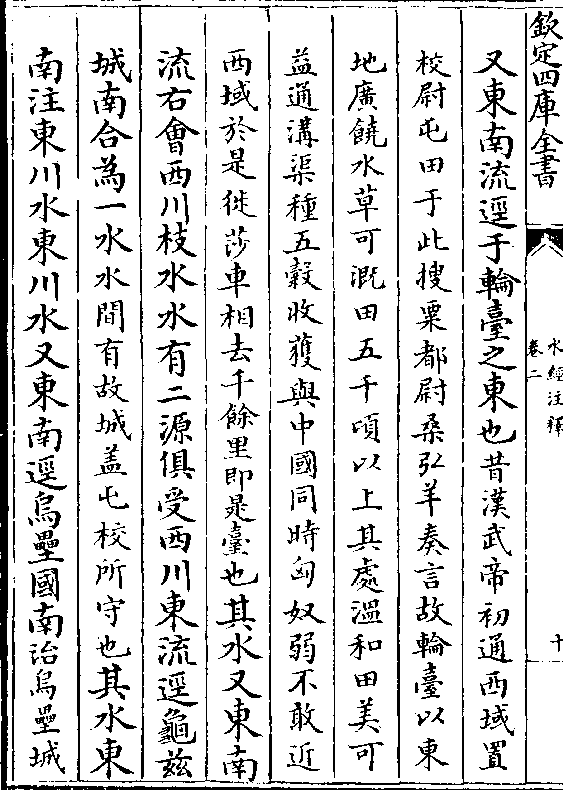 欽定四庫全書
水經注釋
卷二
十
又東南流逕于輪臺之東也昔漢武帝初通西域置
校尉屯田于此搜粟都尉桑弘羊奏言故輪臺以東
地廣饒水草可溉田五千頃以上其處溫和田美可
益通溝渠種五穀收獲與中國同時匈奴弱不敢近
西域於是徙莎車相去千餘里即是臺也其水又東南
流右會西川枝水水有二源俱受西川東流逕龜茲
城南合為一水水間有故城盖屯校所守也其水東
南注東川水東川水又東南逕烏壘國南治烏壘城